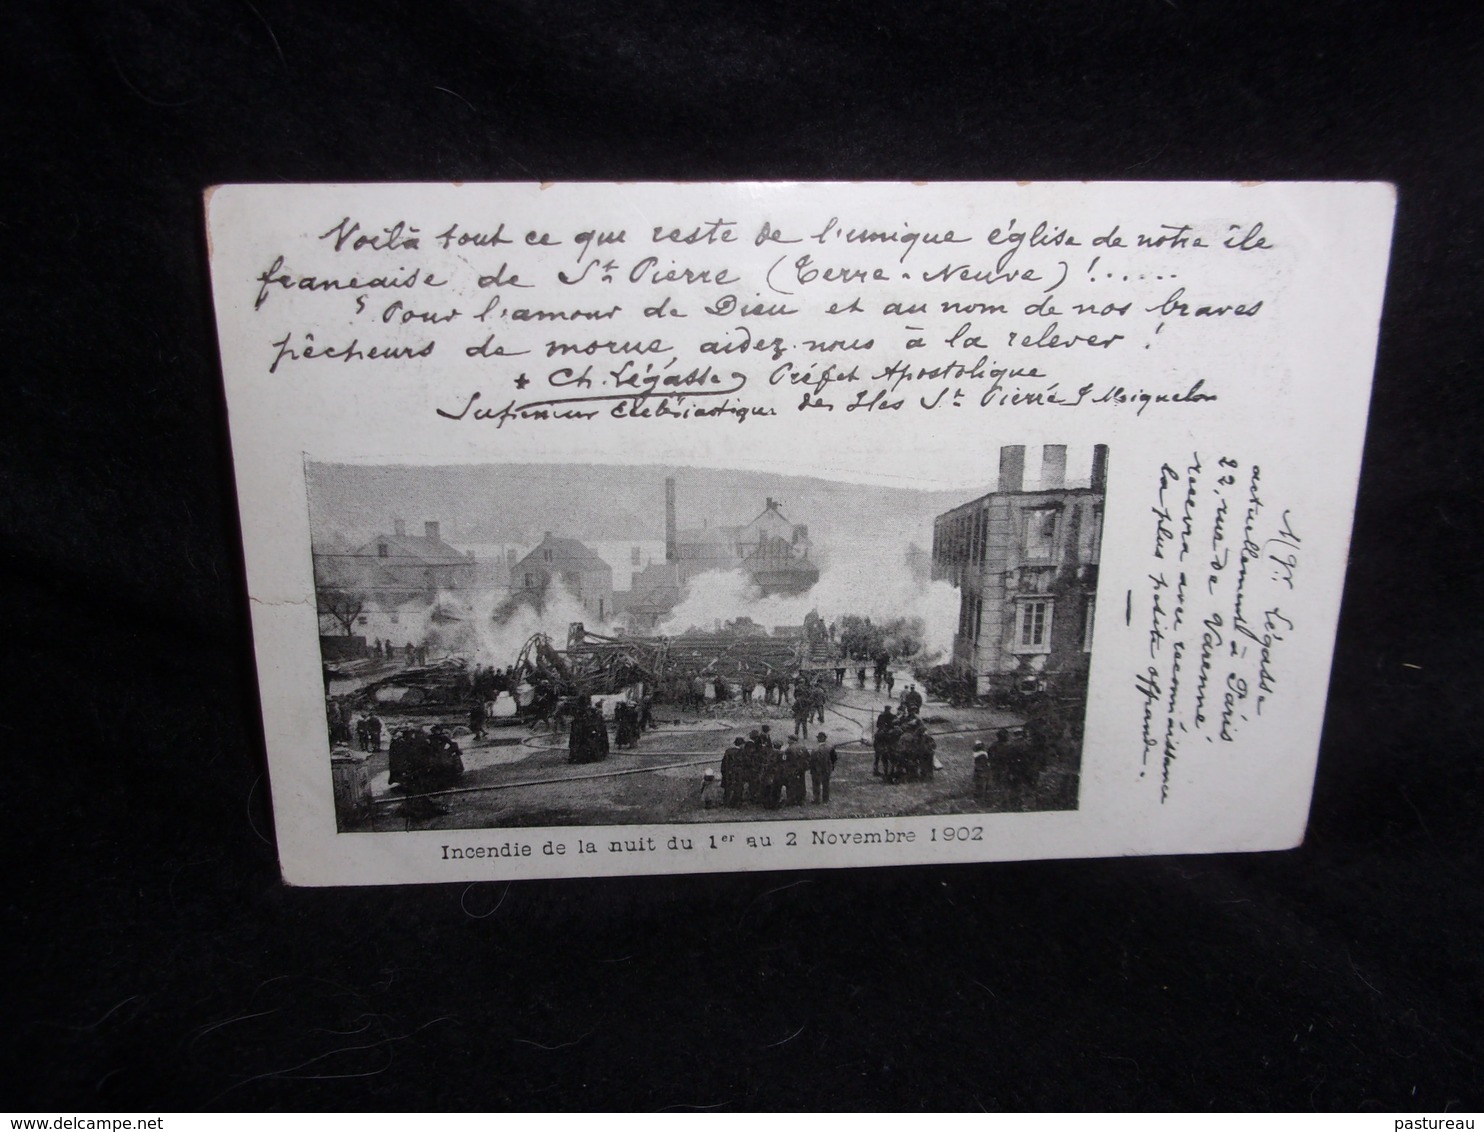 Voilà tout ce qui reste de l'unique église de notre île
française de St Pierre (Terre-Neuve)!......
Pour l'amour de Dieu et au nom de nos braves
pêcheurs de morue, aidez-nous à la relever!
Ch. Légasse Préfet Apostolique
Supérieur Ecclésiastique des Iles St Pierre & Miquelon
Mgr. Légasse
actuellement à Paris
22, rue de Varenne
recevra avec reconnaissance
la plus petite offrande.
Incendie de la nuit du 1er au 2 Novembre 1902
delcampe.net
pastureau